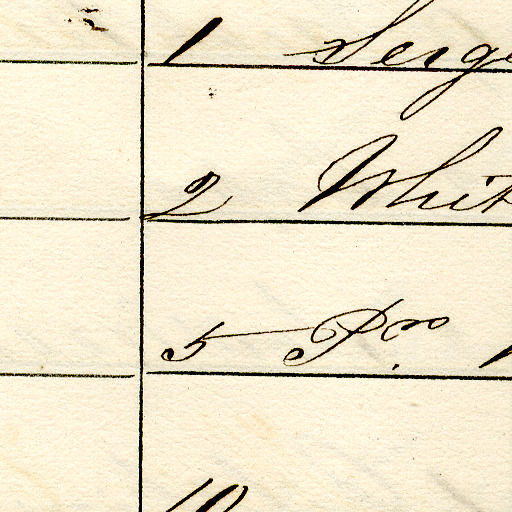 1 Serge
2 Whit
5 Pr.
10